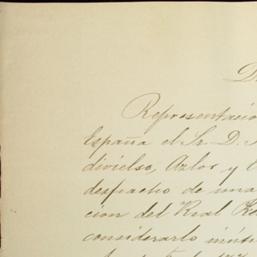 D.
Representació
España el Sr. D.
divielso, Azlor y
despacho de una
cion del Real
considerarlo inúti